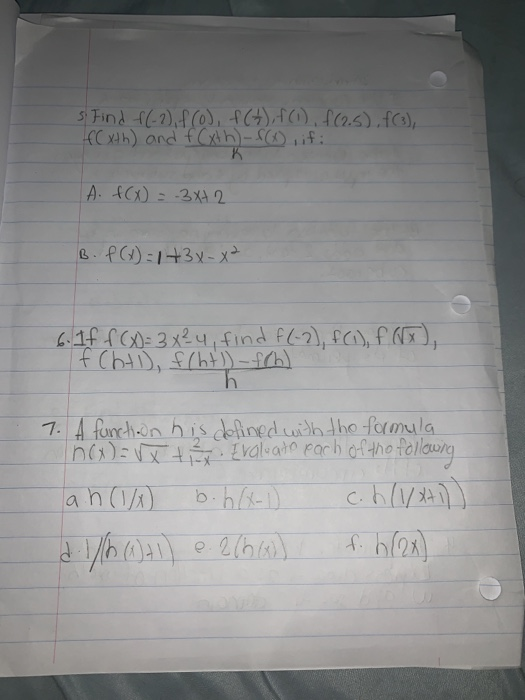 5. Find f(-2), f(0), f(½), f(1), f(2.5), f(3),
f(x+h) and f(x+h)-f(x)/h, if:
A. f(x) = -3x+2
B. f(x)=1+3x-x²
6. If f(x)=3x²-4, find f(-2), f(1), f(√x),
f(h+1), f(h+1)-f(h)/h
7. A function h is defined with the formula
h(x)=√x + 2/1-x. Evaluate each of the following
a h(1/x) b. h(x-1) c. h(1/x+1))
d. 1/(h(x)+1) e. 2(h(x)) f. h(2x)